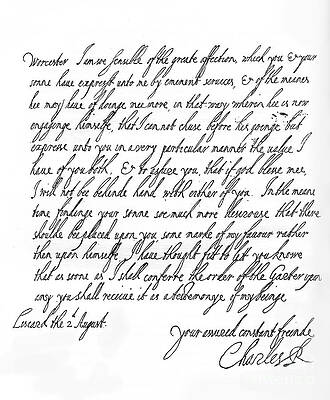 Worcester I am soe sensible of the great affection, which you & your
sonne haue exprest unto me by eminent seruices, & of the meanes
hee may haue of doeing mee more, in that way wherein hee is now
engageing himselfe, that I cannot chuse before his goeinge but
expresse unto you in a very particular manner the value I
haue of you both, & to assure you, that if god blesse mee,
I will not be behinde hand with either of you. In the meane
time findinge your sonne soe much more desirouse that there
should be placed upon you some marke of my fauour rather
then upon himselfe, I haue thought fit to let you knowe
that as soone as I shall conferre the order of the Garter upon
any you shall receiue it as a testemonye of my beinge
Lescard the 2d August. Your assured constant freinde
Charles R